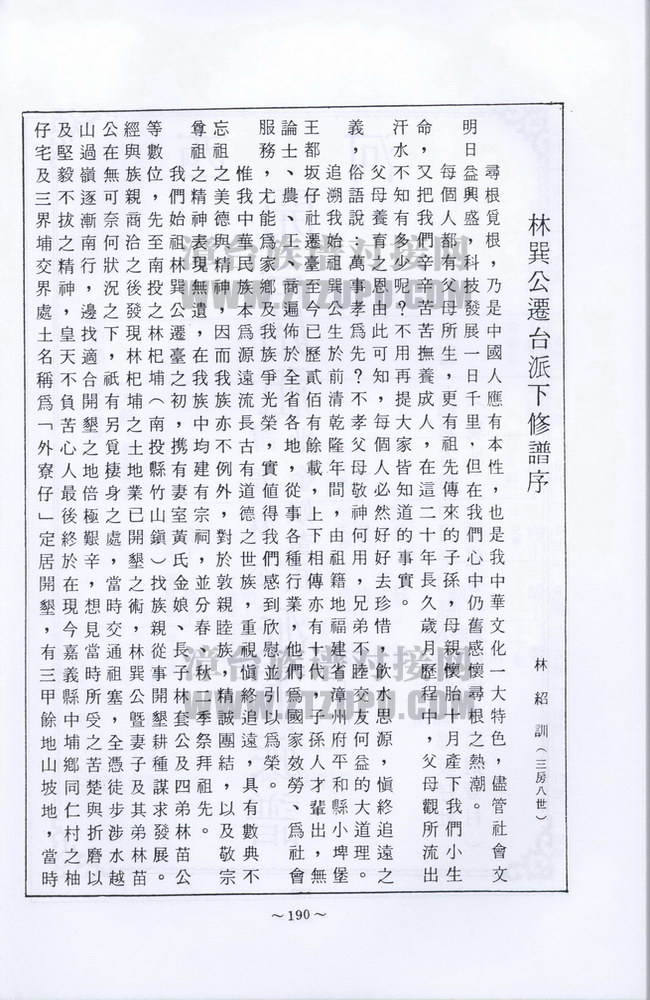 林巽公遷台派下修譜序
林紹訓（三房八世）
尋根覓根，乃是中國人應有本性，也是我中華文化一大特色，儘管社會文
明日益興盛，科技發展一日千里，但在我們心中仍舊感懷尋根之熱潮。
每個人都有父母所生，更有祖先傳來的子孫，母親懷胎十月產下我們小生
命，又把我們辛辛苦苦撫養成人，在這二十年長久歲月歷程中，父母觀所流出
汗水不知有多少呢？不用再提大家皆知道的事實。
父母養育之恩由此可知，每個人必然好好去珍惜，飲水思源，愼終追遠之
義，俗語說：萬事孝爲先？不孝父母敬神何用，兄弟不睦交友何益的大道理。
追溯我始祖巽公生於前清乾隆年間，由祖籍地福建省漳州府平和縣小埤堡
王都坂仔社遷臺至今已歷貳佰有餘載，上下相傳亦有十代，子孫人才輩出，無
論士、農、工、商遍佈於全省各地，從事各種行業，他們爲國家效勞、爲社會
服務，尤能爲家鄉及我族爭光榮，實値得我們感到欣慰並引以爲榮。
惟我中華民族本爲源遠流長古有道德之世族，重視愼終追遠，具有數典不
忘祖之美德與精神，因而我族亦不例外，對於敦親睦族，精誠團結，以及敬宗
尊祖之精神表現無遺，在我族中均建有宗祠，並分春、秋二季祭拜祖先。
我們始祖林巽公遷臺之初，携有妻室黃氏金娘、長子林套公及四弟林苗公
等數位，先至南投之林杞埔（南投縣竹山鎭）找族親從事開墾耕種謀求發展。
經與族親商洽之後發現林杞埔之土地業已開墾之術，林巽公暨妻子及其弟林苗
公在無可奈何狀況之下，祇有另覓棲身之處，當時交通祖塞，全憑徒步涉水越
山過嶺逐漸南行，邊找適合開墾之地倍極艱辛，想見當時所受之苦楚與折磨以
及堅毅不拔之精神，皇天不負苦心人最後終於在現今嘉義縣中埔鄉同仁村之柚
仔宅及三界埔交界處土名稱爲「外寮仔」定居開墾，有三甲餘地山坡地，當時
～190～
漳台族譜对接网
ZTZUPU.COM
漳台族譜对接网
ZTZUPU.COM